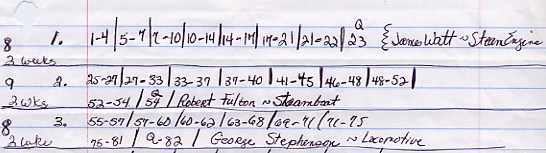 8 1. 1-4 | 5-7 | 7-10 | 10-14 | 14-17 | 17-21 | 21-22 | Q 23 { James Watt ~ Steam Engine
2 weeks
9 2. 25-27 | 27-33 | 33-37 | 37-40 | 41-45 | 46-48 | 48-52 |
2 wks 52-54 | Q 54 | Robert Fulton ~ Steamboat
8 3. 55-57 | 57-60 | 60-62 | 63-68 | 69-71 | 71-75
2 wks 75-81 | Q-82 | George Stephenson ~ Locomotive